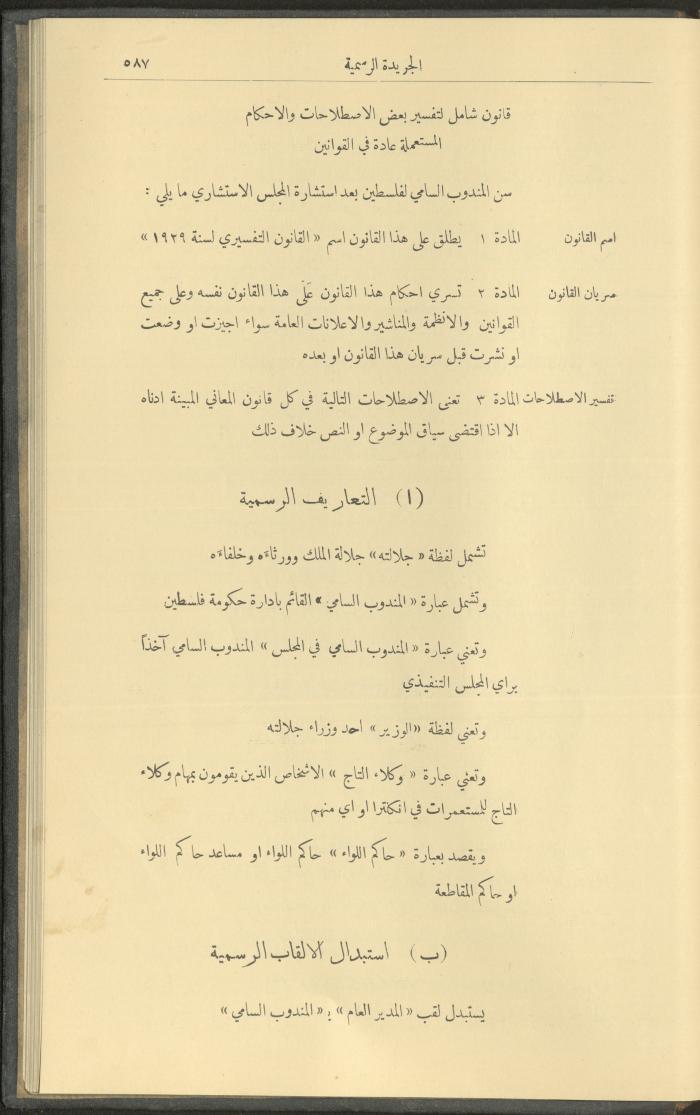 الجريدة الرسمية ٥٨٧
قانون شامل لتفسير بعض الاصطلاحات والاحكام
المستعملة عادة في القوانين
سن المندوب السامي لفلسطين بعد استشارة المجلس الاستشاري ما يلي :
اسم القانون المادة ١ يطلق على هذا القانون اسم « القانون التفسيري لسنة ١٩٢٩ »
سريان القانون المادة ٢ تسري احكام هذا القانون عَلَى هذا القانون نفسه وعلى جميع
القوانين والانظمة والمناشير والاعلانات العامة سواء اجيزت او وضعت
او نشرت قبل سريان هذا القانون او بعده
تفسير الاصطلاحات المادة ٣ تعنى الاصطلاحات التالية في كل قانون المعاني المبينة ادناه
الا اذا اقتضى سياق الموضوع او النص خلاف ذلك
(ا) التعاريف الرسمية
تشمل لفظة « جلالته » جلالة الملك وورثاءَه وخلفاءَه
وتشمل عبارة « المندوب السامي » القائم بادارة حكومة فلسطين
وتعني عبارة « المندوب السامي في المجلس » المندوب السامي آخذاً
براي المجلس التنفيذي
وتعني لفظة « الوزير » احد وزراء جلالته
وتعني عبارة « وكلاء التاج » الاشخاص الذين يقومون بمهام وكلاء
التاج للمستعمرات في انكلترا او اي منهم
ويقصد بعبارة « حاكم اللواء » حاكم اللواء او مساعد حاكم اللواء
او حاكم المقاطعة
(ب) استبدال الالقاب الرسمية
يستبدل لقب « المدير العام » بـ « المندوب السامي »